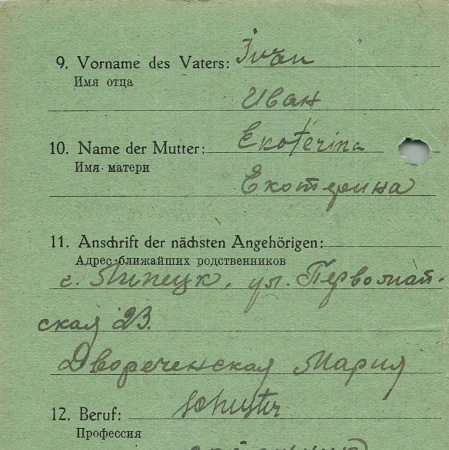 9. Vorname des Vaters: Ivan
Имя отца
Иван
10. Name der Mutter: Ekaterina
Имя матери
Екотерина
11. Anschrift der nächsten Angehörigen:
Адрес ближайших родственников
с. Липецк, ул. Первомай-
ская 23.
Двореченская Мария
12. Beruf: Schuster
Профессия